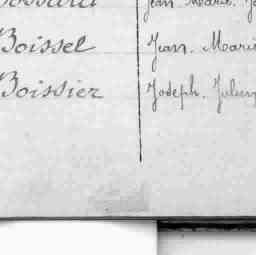 Jean Marie.
Boissel Jean. Marie
Boissier Joseph. Julien